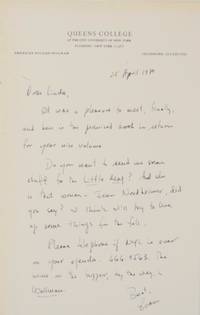 QUEENS COLLEGE
OF THE CITY UNIVERSITY OF NEW YORK
FLUSHING · NEW YORK 11367
AMERICAN STUDIES PROGRAM
25 April 1980
Dear Linda,
It was a pleasure to meet, finally,
and here is the promised book in return
for your nice volume.
Do you want to send me some
stuff for the Little Mag? And who
is that woman -
you say? I think I will try to line
up some things for the fall.
Please telephone if NYC is ever
on your agenda. The
name on the buzzer, by the way, is
Wallman.
Best,